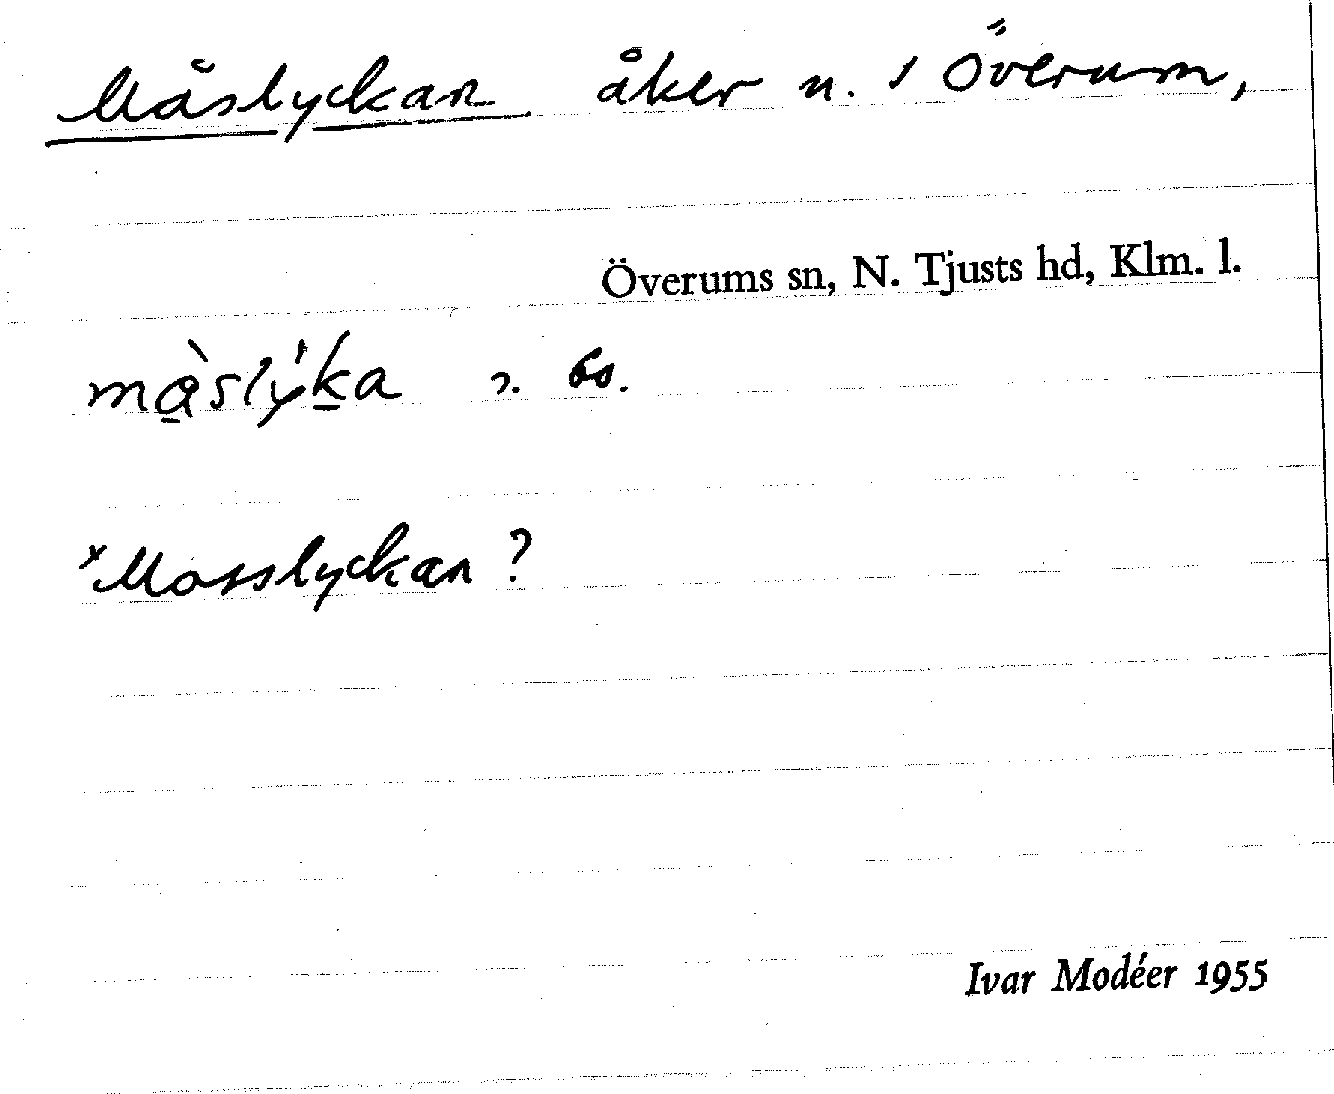 Måslyckan åker n. 1 Överum,
Överums sn, N. Tjusts hd, Klm. l.
*Mosslyckan ?
Ivar Modéer 1955